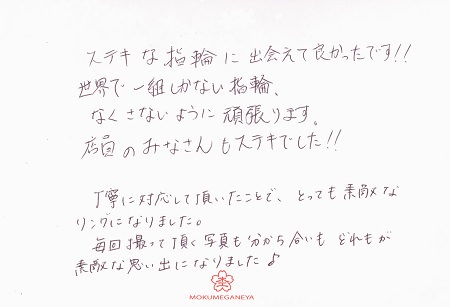 ステキな指輪に出会えて良かったです!!
世界で一組しかない指輪、
なくさないように頑張ります。
店員のみなさんもステキでした!!
丁寧に対応して頂いたことで、とっても素敵な
リングになりました。
毎回撮って頂く写真も分から合いも どれもが
素敵な思い出になりました♪
MOKUMEGANEYA